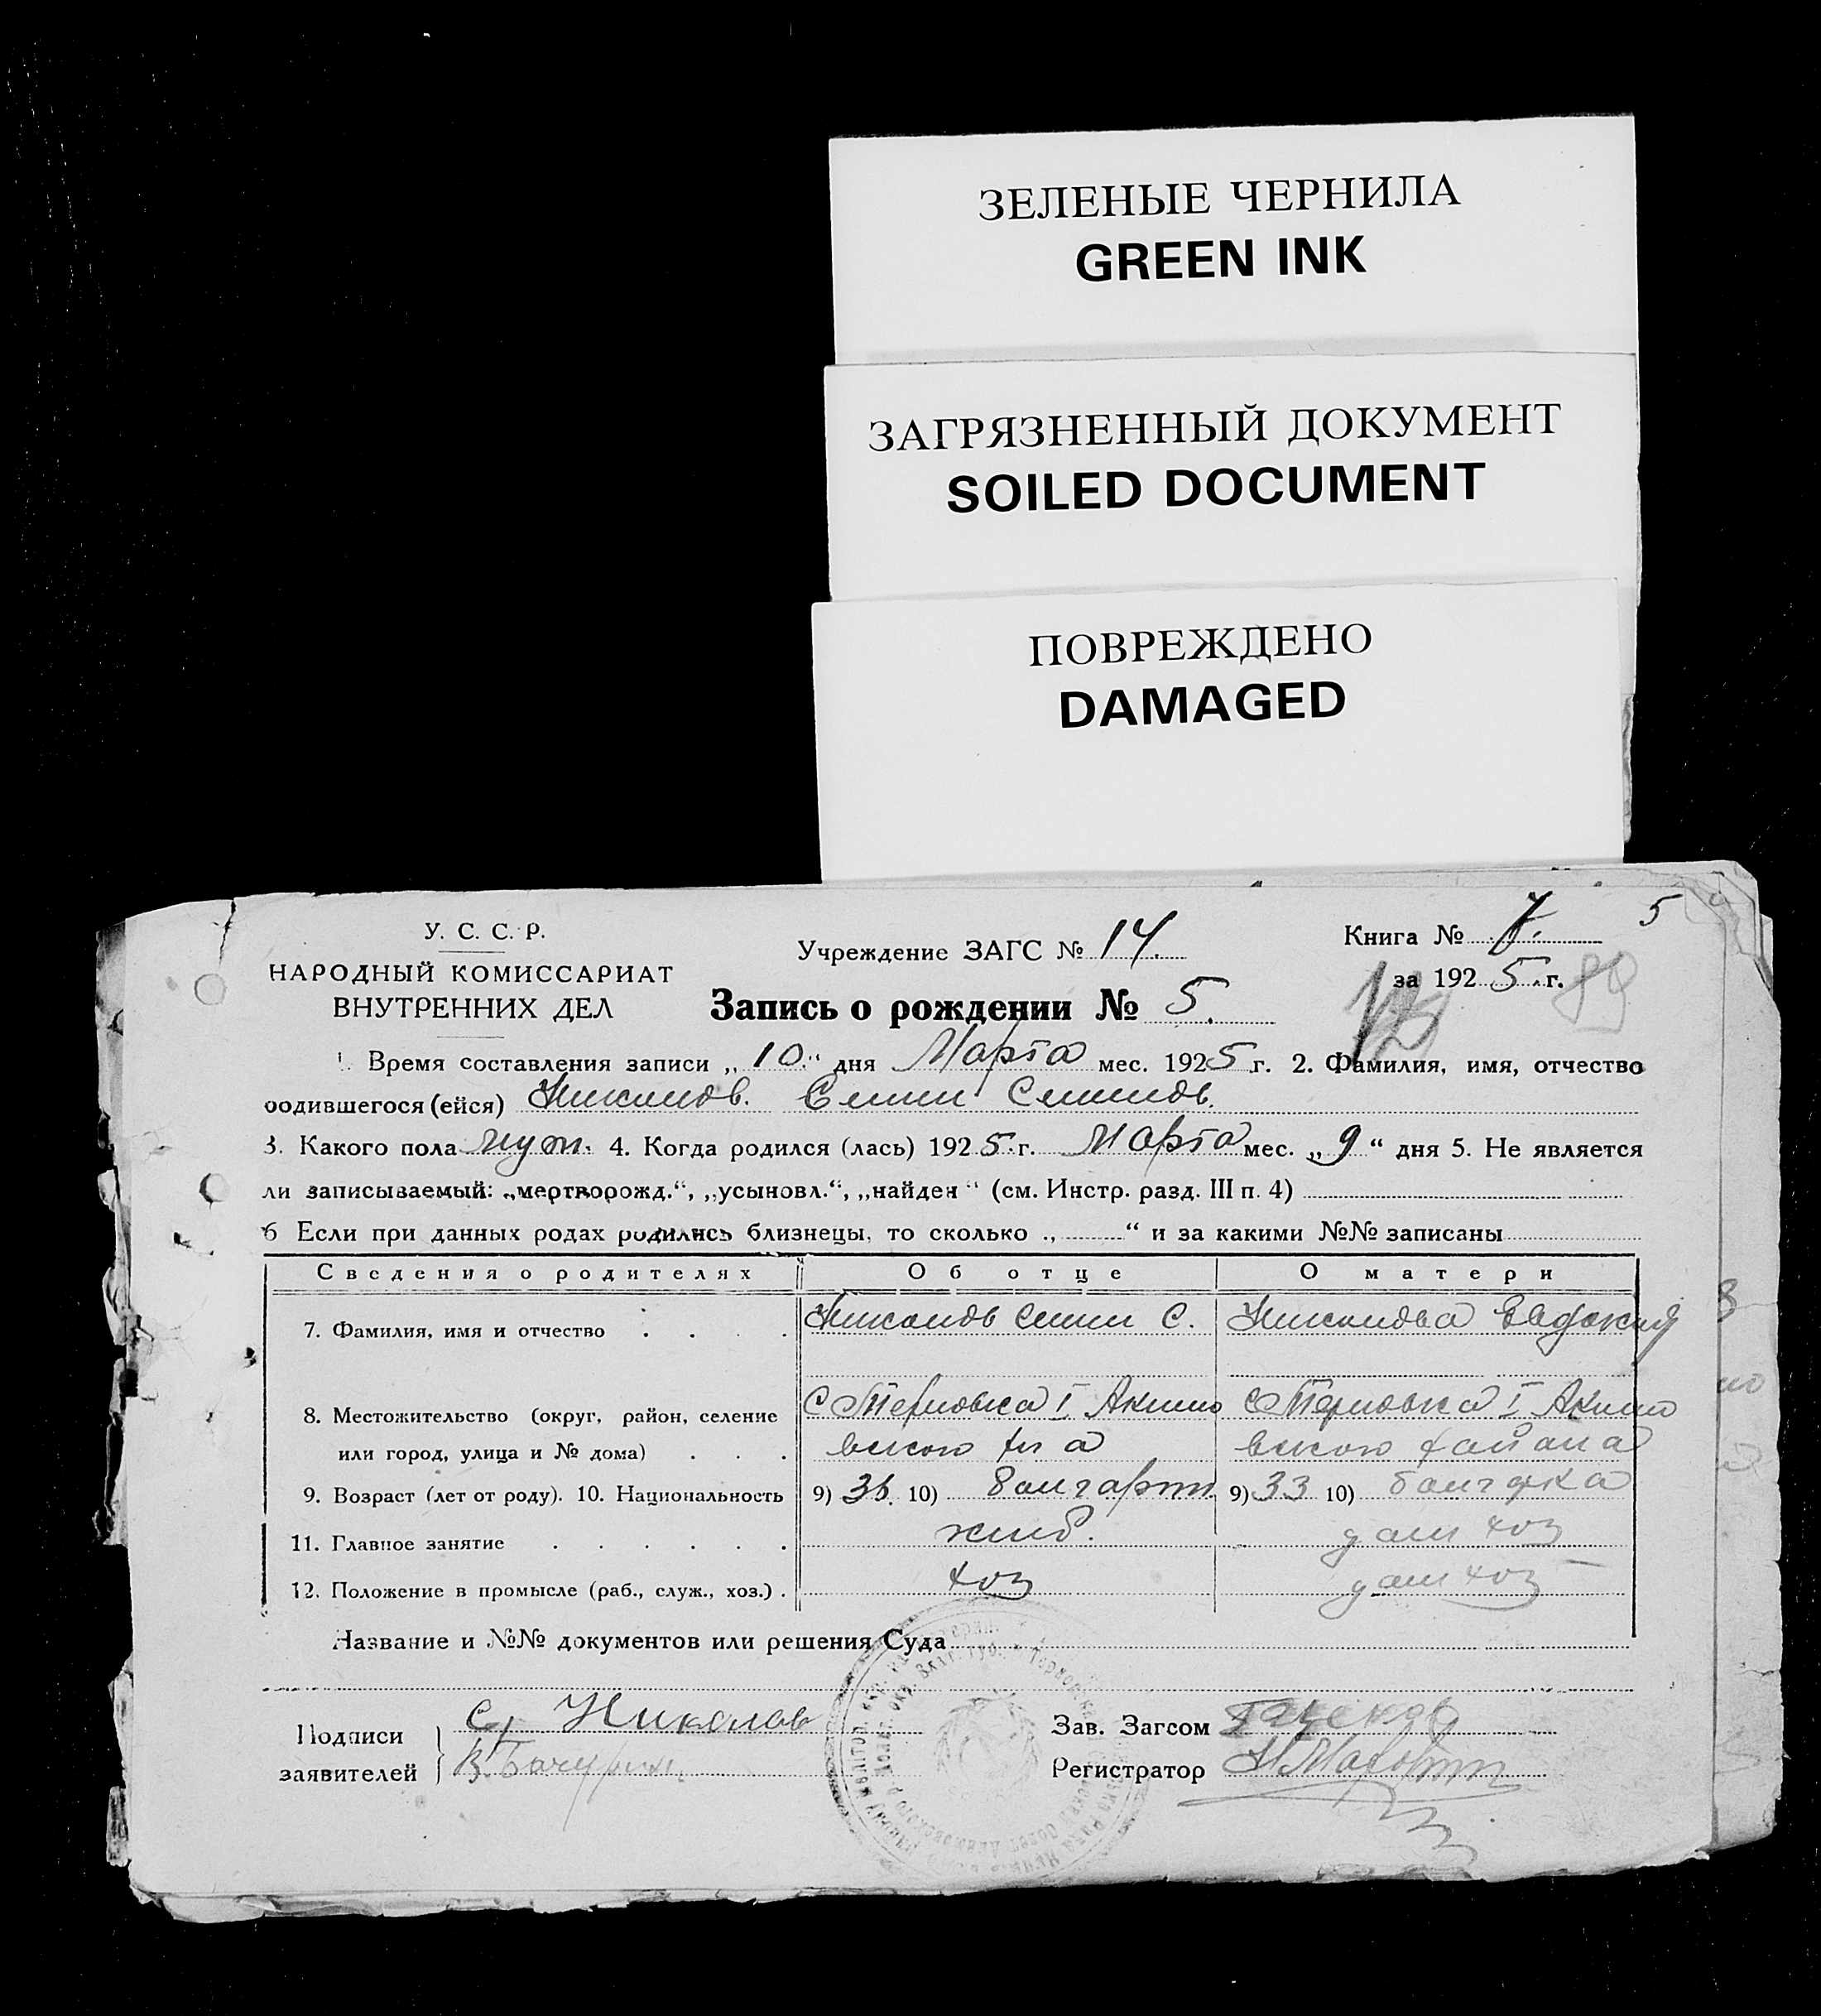 ЗЕЛЕНЫЕ ЧЕРНИЛА
GREEN INK
ЗАГРЯЗНЕННЫЙ ДОКУМЕНТ
SOILED DOCUMENT
ПОВРЕЖДЕНО
DAMAGED
5
У. С. С. Р.
НАРОДНЫЙ КОМИССАРИАТ
ВНУТРЕННИХ ДЕЛ
Учреждение ЗАГС № 14.
Книга № 7.
за 1925 г. 89
Запись о рождении № 5.
1. Время составления записи „10.“ дня Марта мес. 1925 г. 2. Фамилия, имя, отчество
родившегося (ейся)
3. Какого пола муж. 4. Когда родился (лась) 1925 г. Марта мес. „9“ дня 5. Не является
ли записываемый: „мертворожд.“, „усыновл.“, „найден“ (см. Инстр. разд. III п. 4)
6 Если при данных родах родились близнецы, то сколько „ “ и за какими №№ записаны
Сведения о родителях Об отце О матери
7. Фамилия, имя и отчество С. Евдокия
8. Местожительство (округ, район, селение С Терновка I Акимо С Терновка I Акимо
или город, улица и № дома) вского р на вского района
9. Возраст (лет от роду). 10. Национальность 9) 36. 10) болгарин 9) 33 10) болгарка
11. Главное занятие хлеб. дом хоз
12. Положение в промысле (раб., служ., хоз.) хоз дом хоз
Название и №№ документов или решения Суда
Подписи заявителей С. Николов
В. Бачурин
Зав. Загсом
Регистратор